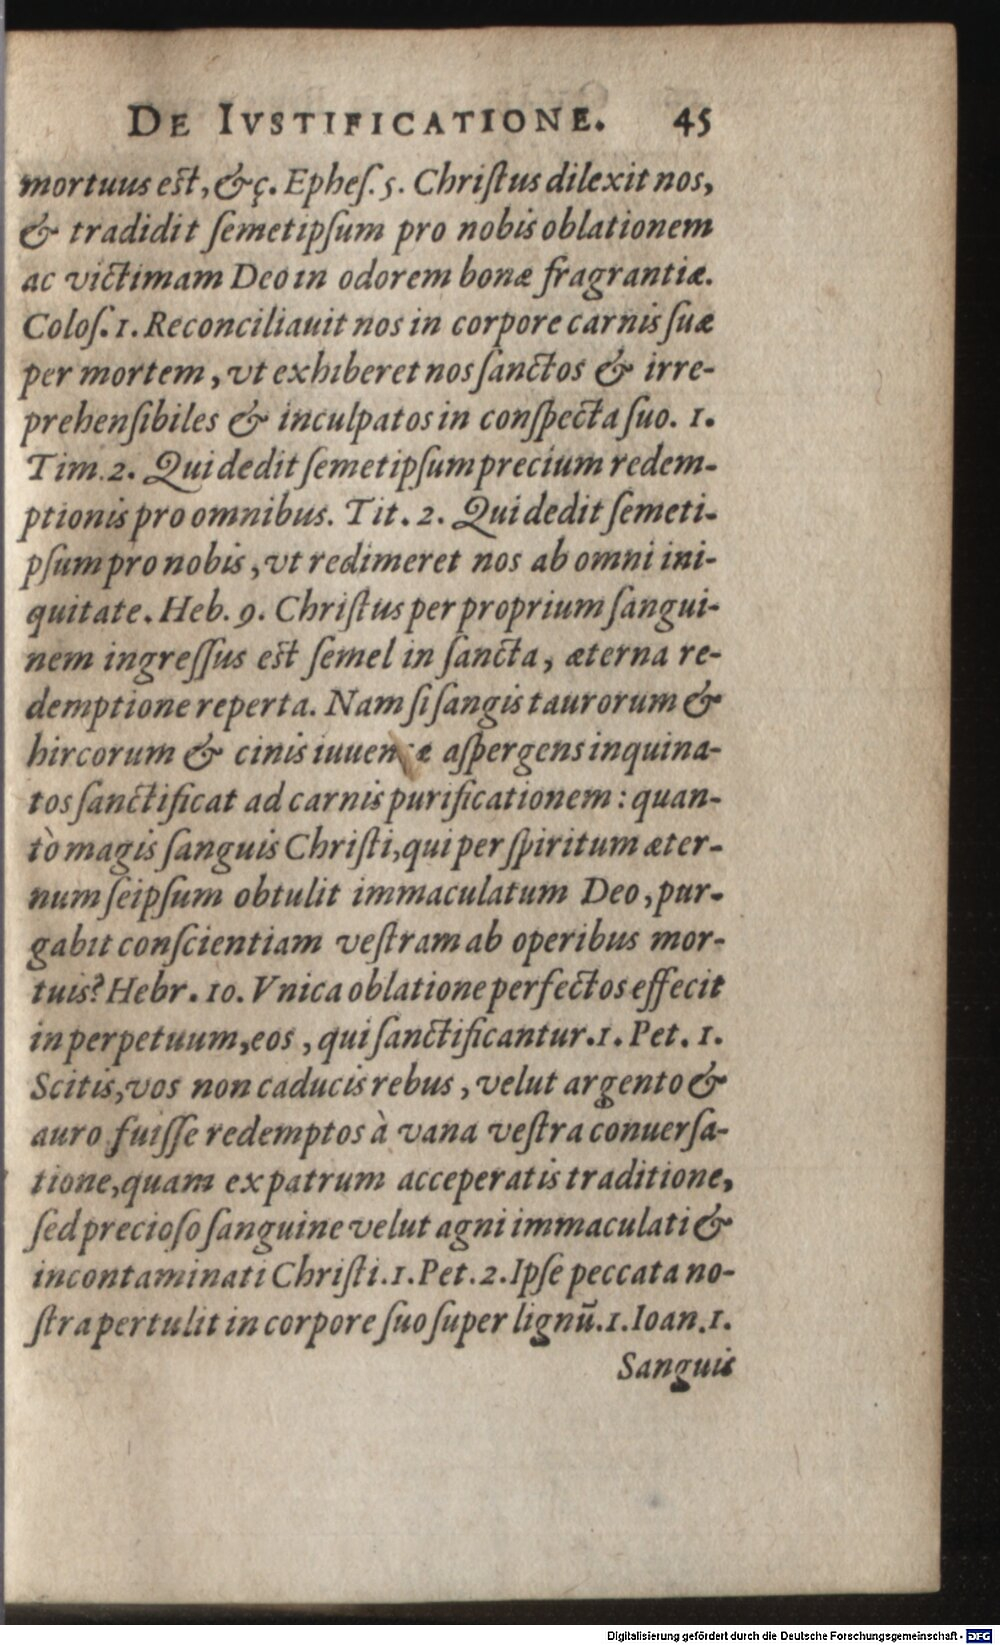 DE IVSTIFICATIONE. 45
mortuus est, &ç. Epheſ. 5. Chriſtus dilexit nos,
& tradidit ſemetipſum pro nobis oblationem
ac victimam Deo in odorem bonæ fragrantiæ.
Coloſ. 1. Reconciliauit nos in corpore carnis ſuæ
per mortem, vt exhiberet nos ſanctos & irre-
prehenſibiles & inculpatos in conſpecta ſuo. 1.
Tim. 2. Qui dedit ſemetipſum precium redem-
ptionis pro omnibus. Tit. 2. Qui dedit ſemeti-
pſum pro nobis, vt redimeret nos ab omni ini-
quitate. Heb. 9. Chriſtus per proprium ſangui-
nem ingreſſus est ſemel in ſancta, æterna re-
demptione reperta. Nam ſi ſangis taurorum &
hircorum & cinis iuuencæ aſpergens inquina-
tos ſanctificat ad carnis purificationem: quan-
tò magis ſanguis Chriſti, qui per ſpiritum æter-
num ſeipſum obtulit immaculatum Deo, pur-
gabit conſcientiam veſtram ab operibus mor-
tuis? Hebr. 10. Vnica oblatione perfectos effecit
in perpetuum, eos, qui ſanctificantur. 1. Pet. 1.
Scitis, vos non caducis rebus, velut argento &
auro fuiſſe redemptos à vana veſtra conuerſa-
tione, quam ex patrum acceperatis traditione,
ſed precioſo ſanguine velut agni immaculati &
incontaminati Chriſti. 1. Pet. 2. Ipſe peccata no-
ſtra pertulit in corpore ſuo ſuper lignū. 1. Ioan. 1.
Sanguis
Digitalisierung gefördert durch die Deutsche Forschungsgemeinschaft - DFG